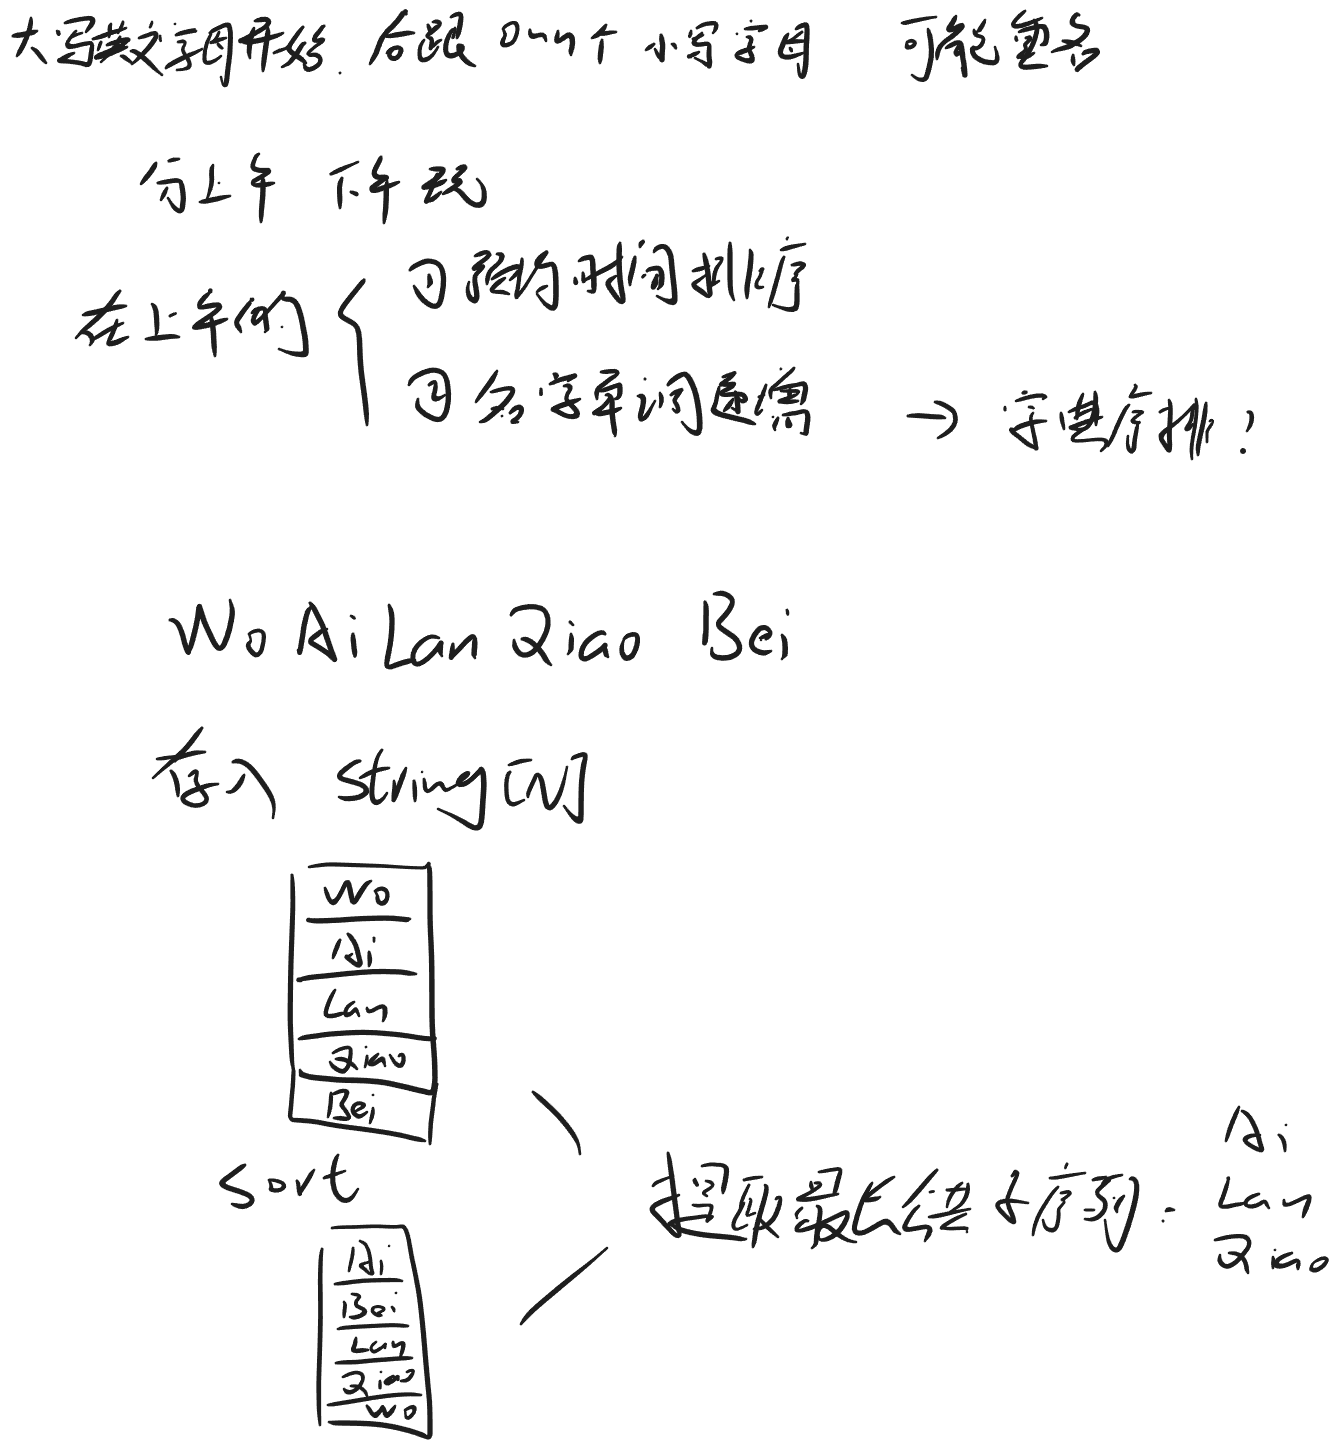 大写英文字母开始. 后跟 0~n个 小写字母 可能重名
分上午 下午 玩
在上午的
① 预约时间排序
② 名字单词递增 → 字典序排?
Wo Ai Lan Qiao Bei
存入 string[N]
Wo
Ai
Lan
Qiao
Bei
sort
Ai
Bei
Lan
Qiao
Wo
提取最长公共子序列.
Ai
Lan
Qiao